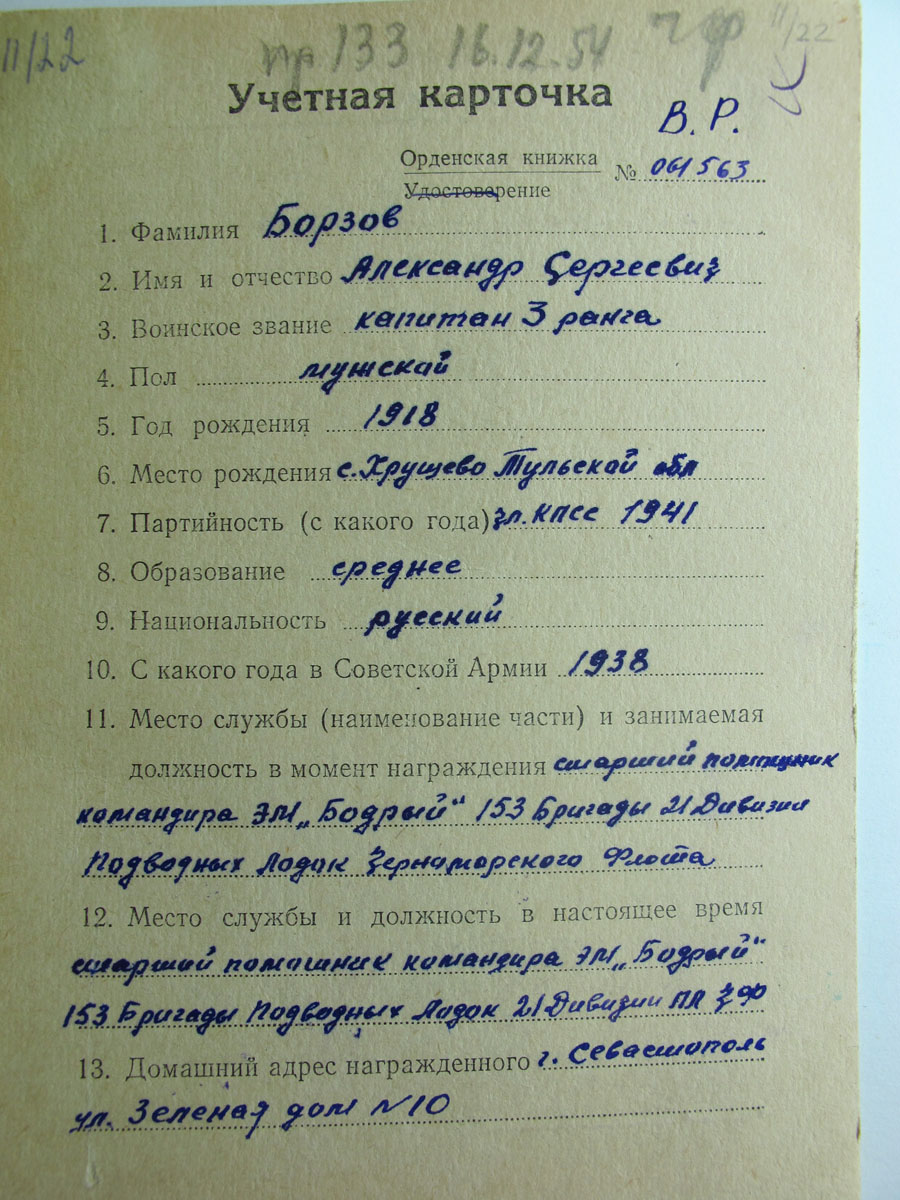 11/22 пр 133 16.12.54 чф 11/22
Учетная карточка
В. Р.
Орденская книжка
Удостоверение № 061563
1. Фамилия Борзов
2. Имя и отчество Александр Сергеевич
3. Воинское звание капитан 3 ранга
4. Пол мужской
5. Год рождения 1918
6. Место рождения с. Хрущево Тульской обл
7. Партийность (с какого года) чл. КПСС 1941
8. Образование среднее
9. Национальность русский
10. С какого года в Советской Армии 1938
11. Место службы (наименование части) и занимаемая
должность в момент награждения старший помощник
командира ЭМ „Бодрый" 153 Бригады 21 Дивизии
Подводных Лодок Черноморского Флота
12. Место службы и должность в настоящее время
старший помошник командира ЭМ „Бодрый"
153 Бригады Подводных Лодок 21 Дивизии ПЛ ЧФ
13. Домашний адрес награжденного г. Севастополь
ул. Зеленая дом №10